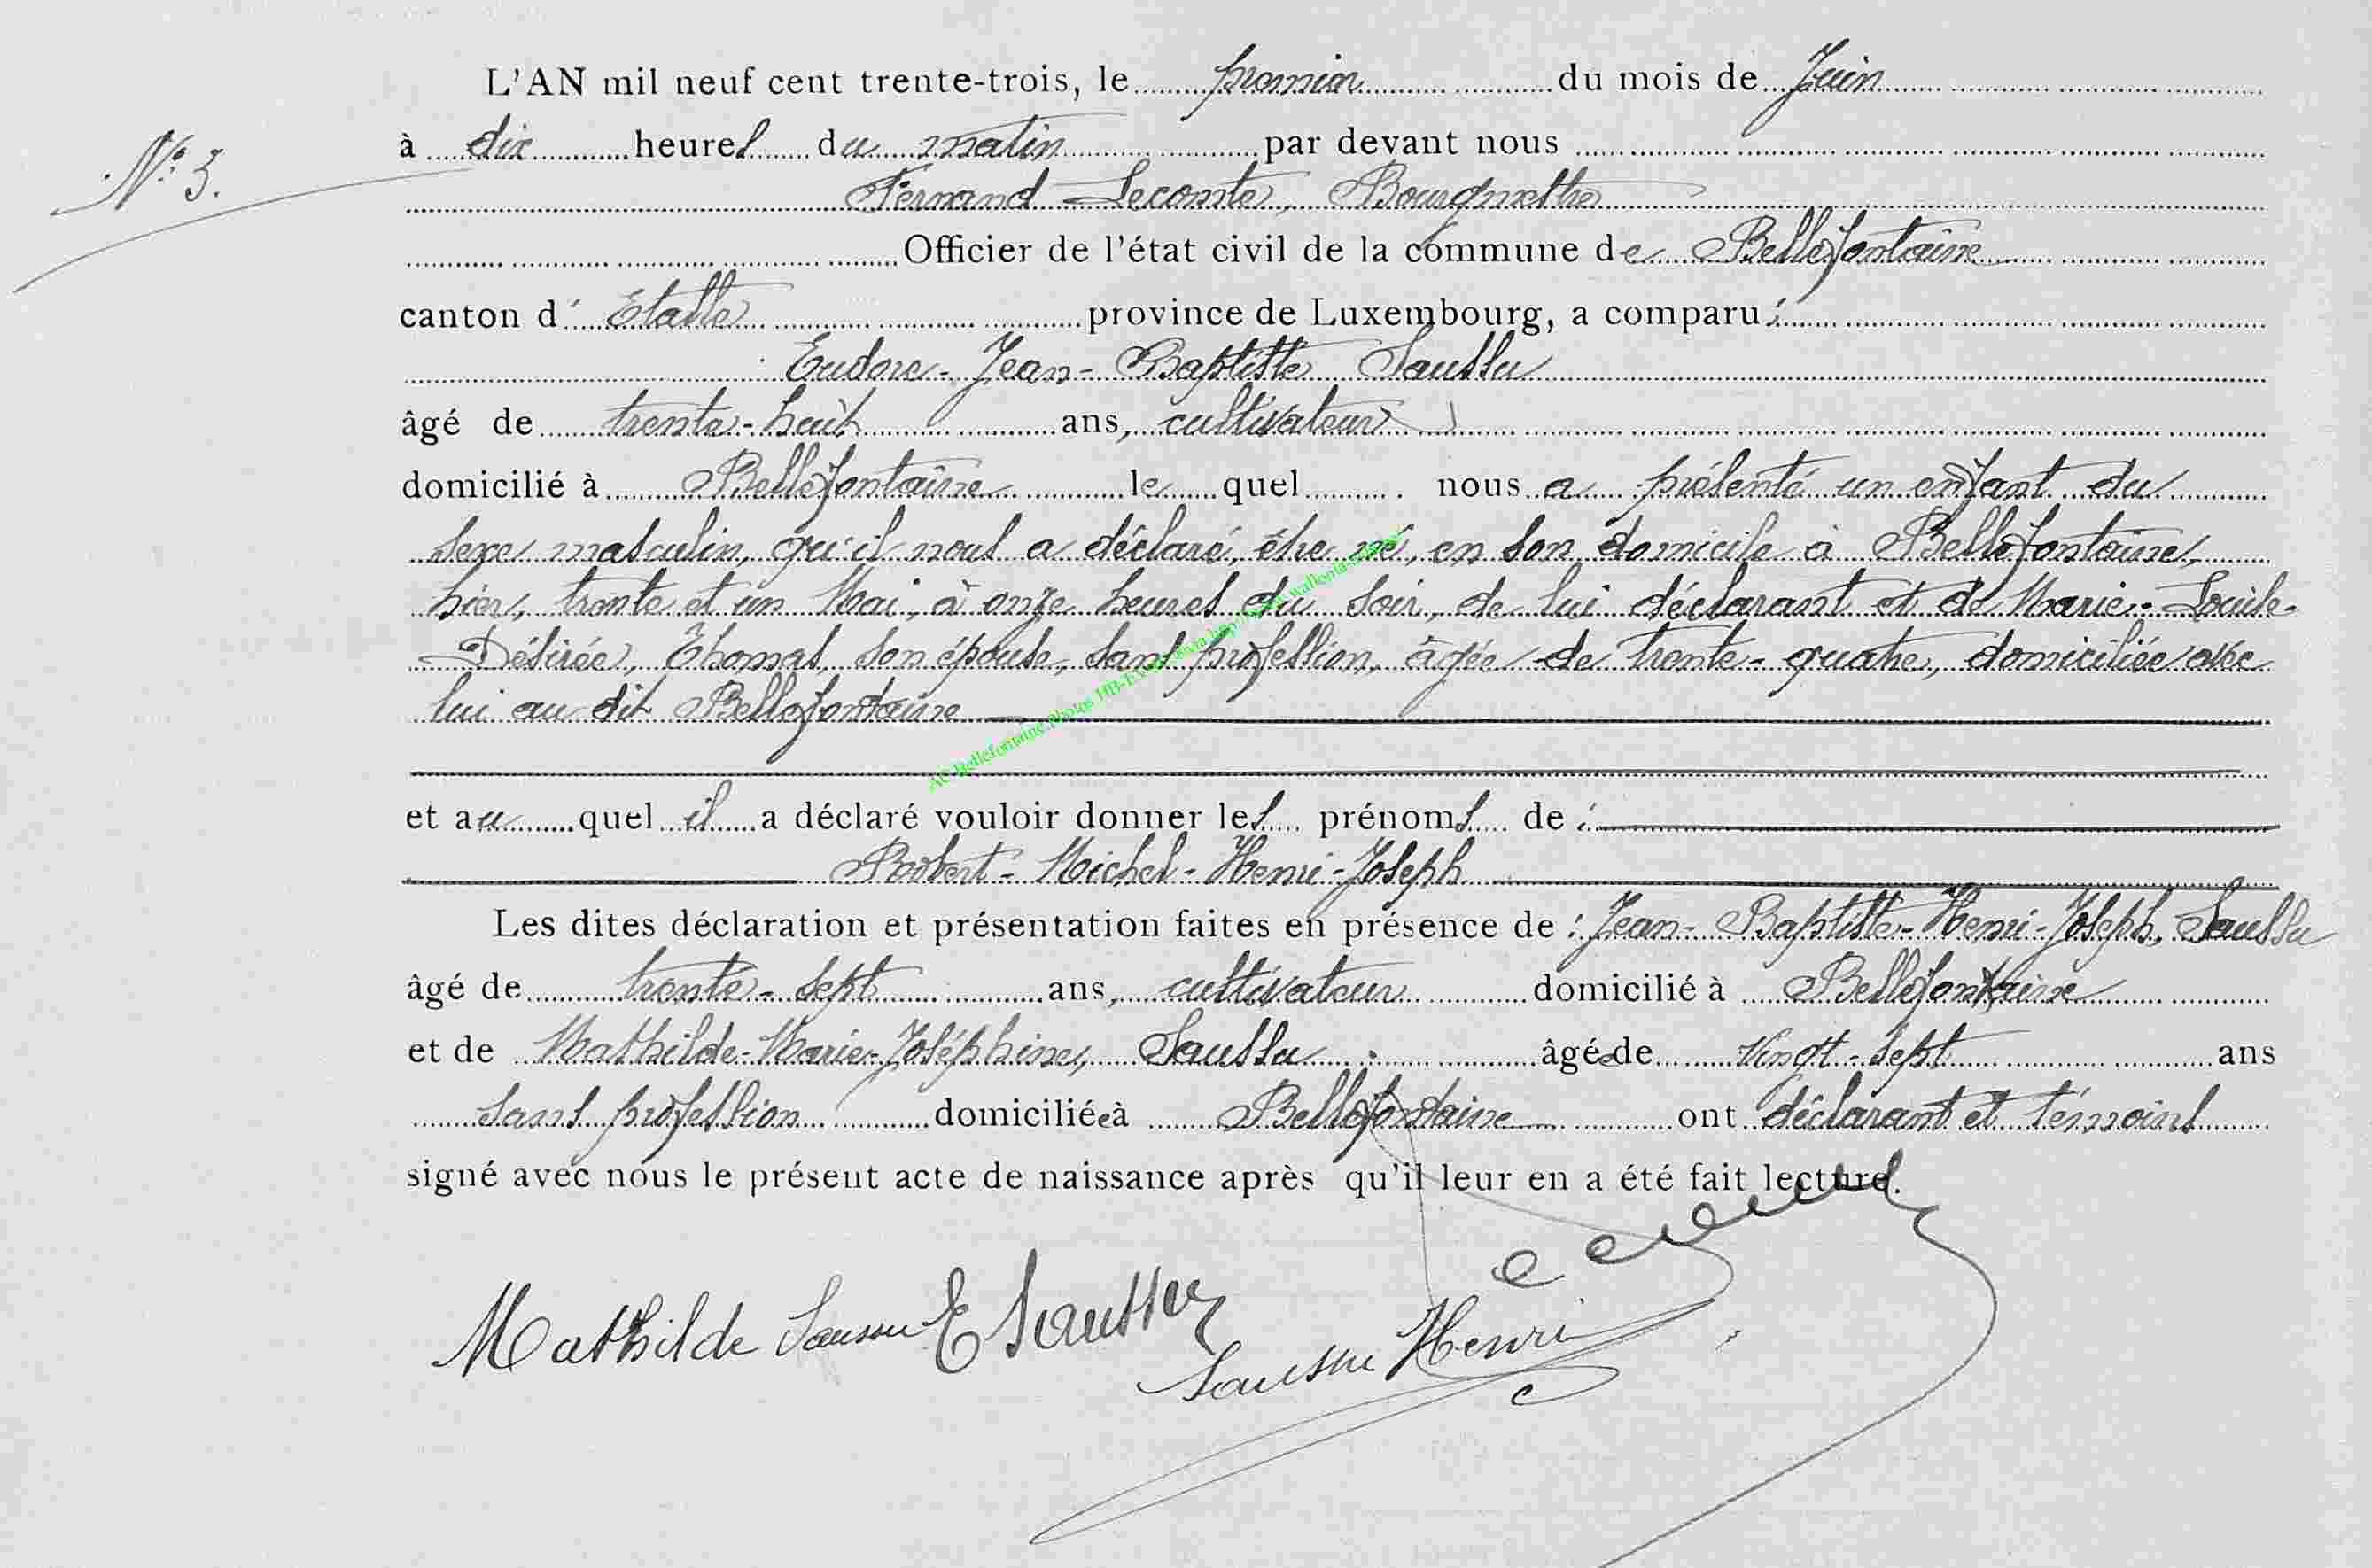 L'AN mil neuf cent trente-trois, le premier du mois de Juin
N° 3.
à dix heures du matin par devant nous
Fernand Lecomte, Bourgmestre
Officier de l'état civil de la commune de Bellefontaine
canton d' Etalle province de Luxembourg, a comparu :
Eudore-Jean-Baptiste Saussu
âgé de trente-huit ans, cultivateur
domicilié à Bellefontaine lequel nous a présenté un enfant du
sexe masculin, qu'il nous a déclaré, être né, en son domicile à Bellefontaine,
hier, trente et un Mai, à onze heures du soir, de lui déclarant et de Marie-Louise-
Désirée, Thomas, son épouse, sans profession, âgée de trente-quatre, domiciliée avec
lui au dit Bellefontaine
AC Bellefontaine Photos HB-EV
et auquel il a déclaré vouloir donner les prénoms de :
Robert-Michel-Henri-Joseph
Les dites déclaration et présentation faites en présence de : Jean-Baptiste-Henri-Joseph, Saussu
âgé de trente-sept ans, cultivateur domicilié à Bellefontaine
et de Mathilde-Marie-Joséphine, Saussu âgée de vingt-sept ans
sans profession domiciliée à Bellefontaine ont déclarant et témoins
signé avec nous le présent acte de naissance après qu'il leur en a été fait lecture.
Mathilde Saussu E Saussu
Saussu Henri